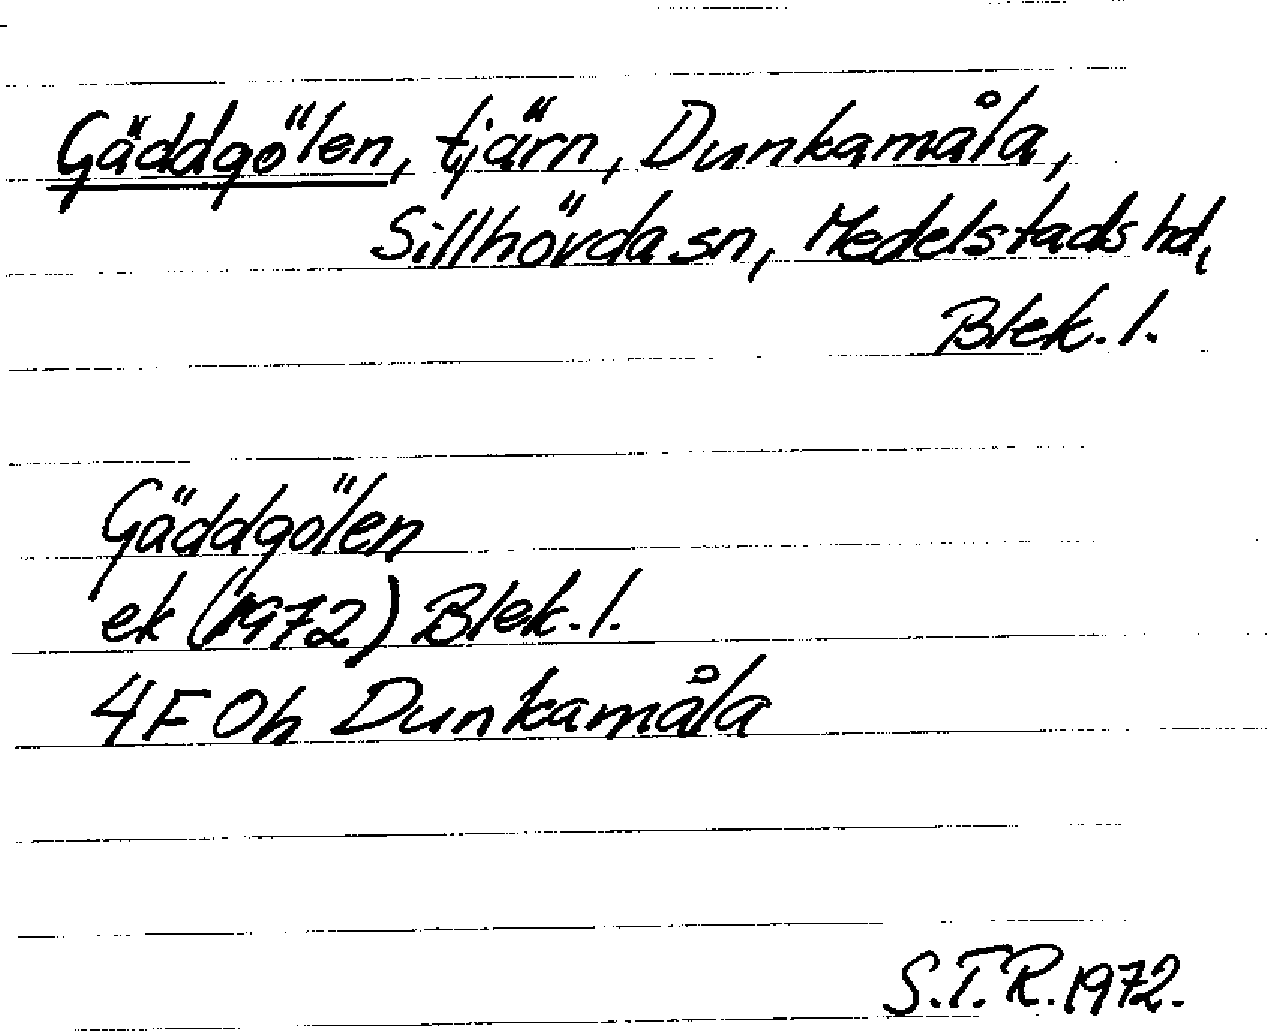 Gäddgölen, tjärn, Dunkamåla,
Sillhövda sn, Medelstads hd,
Blek. l.
Gäddgölen
ek (1972) Blek. l.
4F 0h Dunkamåla
S.T.R. 1972.